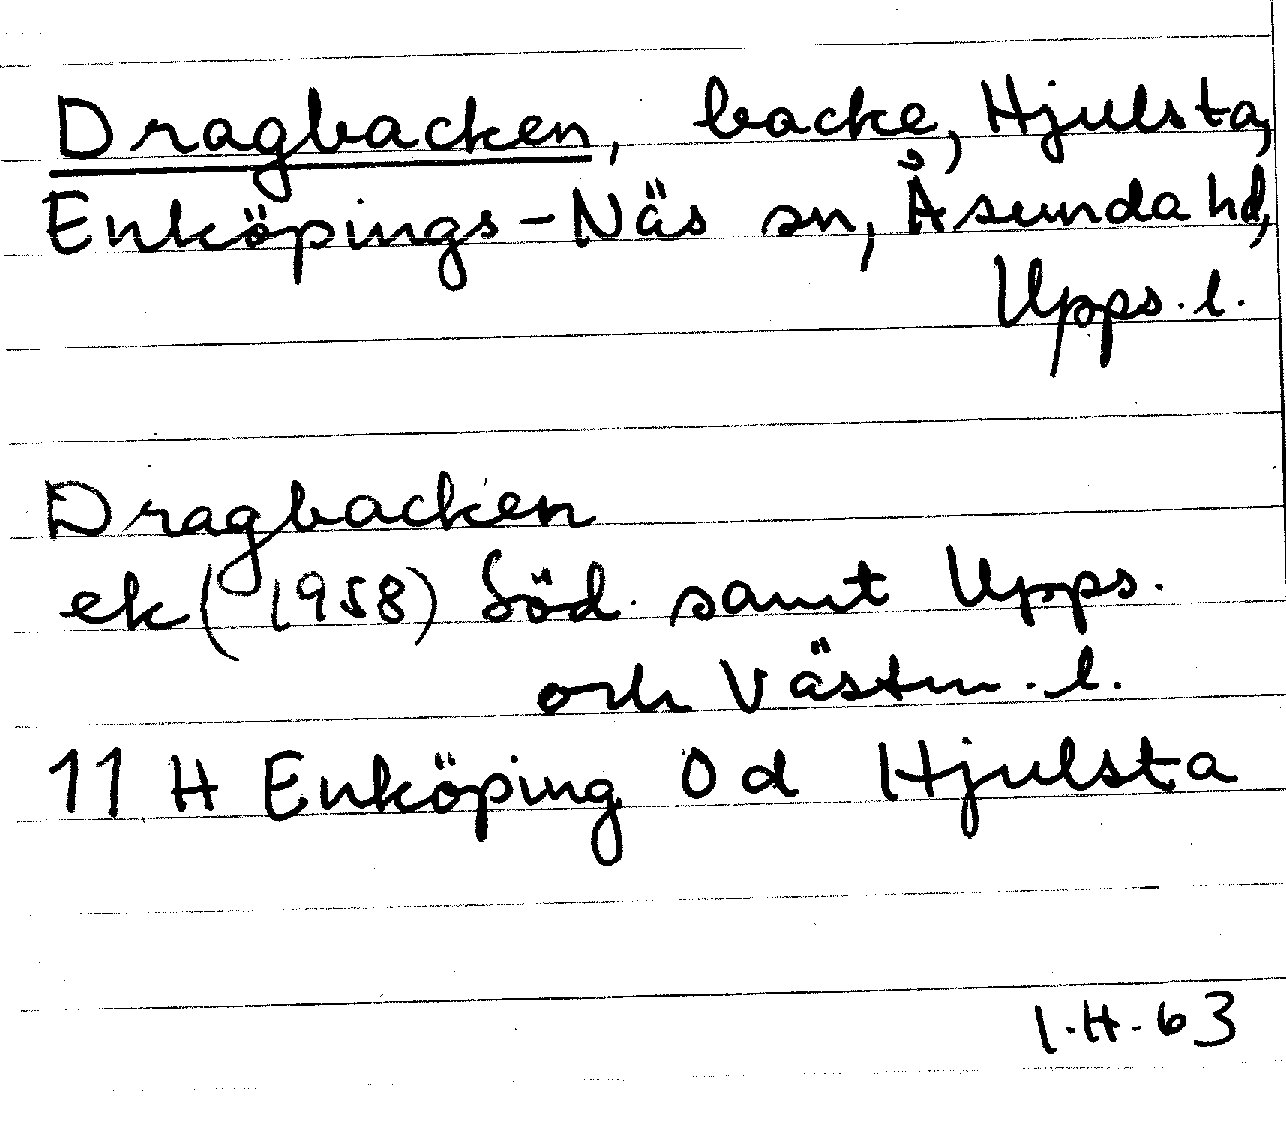 Dragbacken, backe, Hjulsta,
Enköpings-Näs sn, Åsunda hd,
Upps. l.
Dragbacken
ek (1958) Söd. samt Upps.
och Västm. l.
11 H Enköping 0 d Hjulsta
I.H. 63